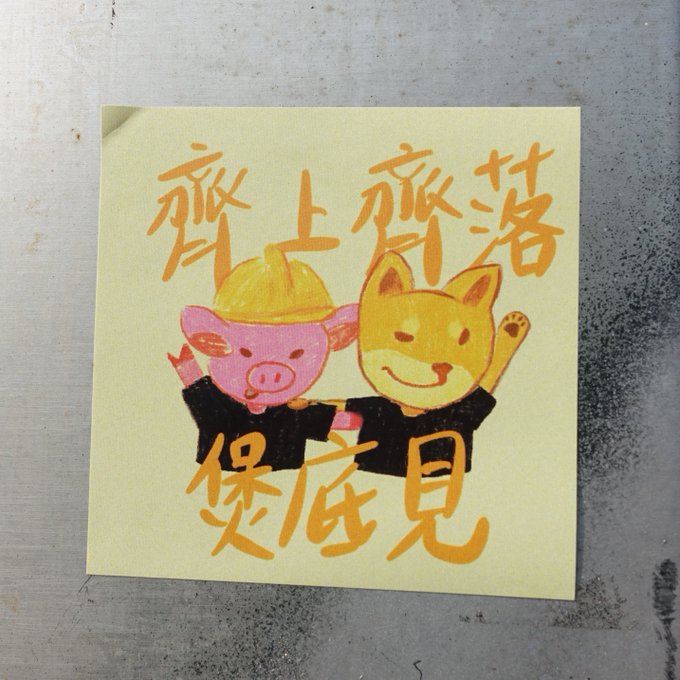 齊上齊落
煲底見